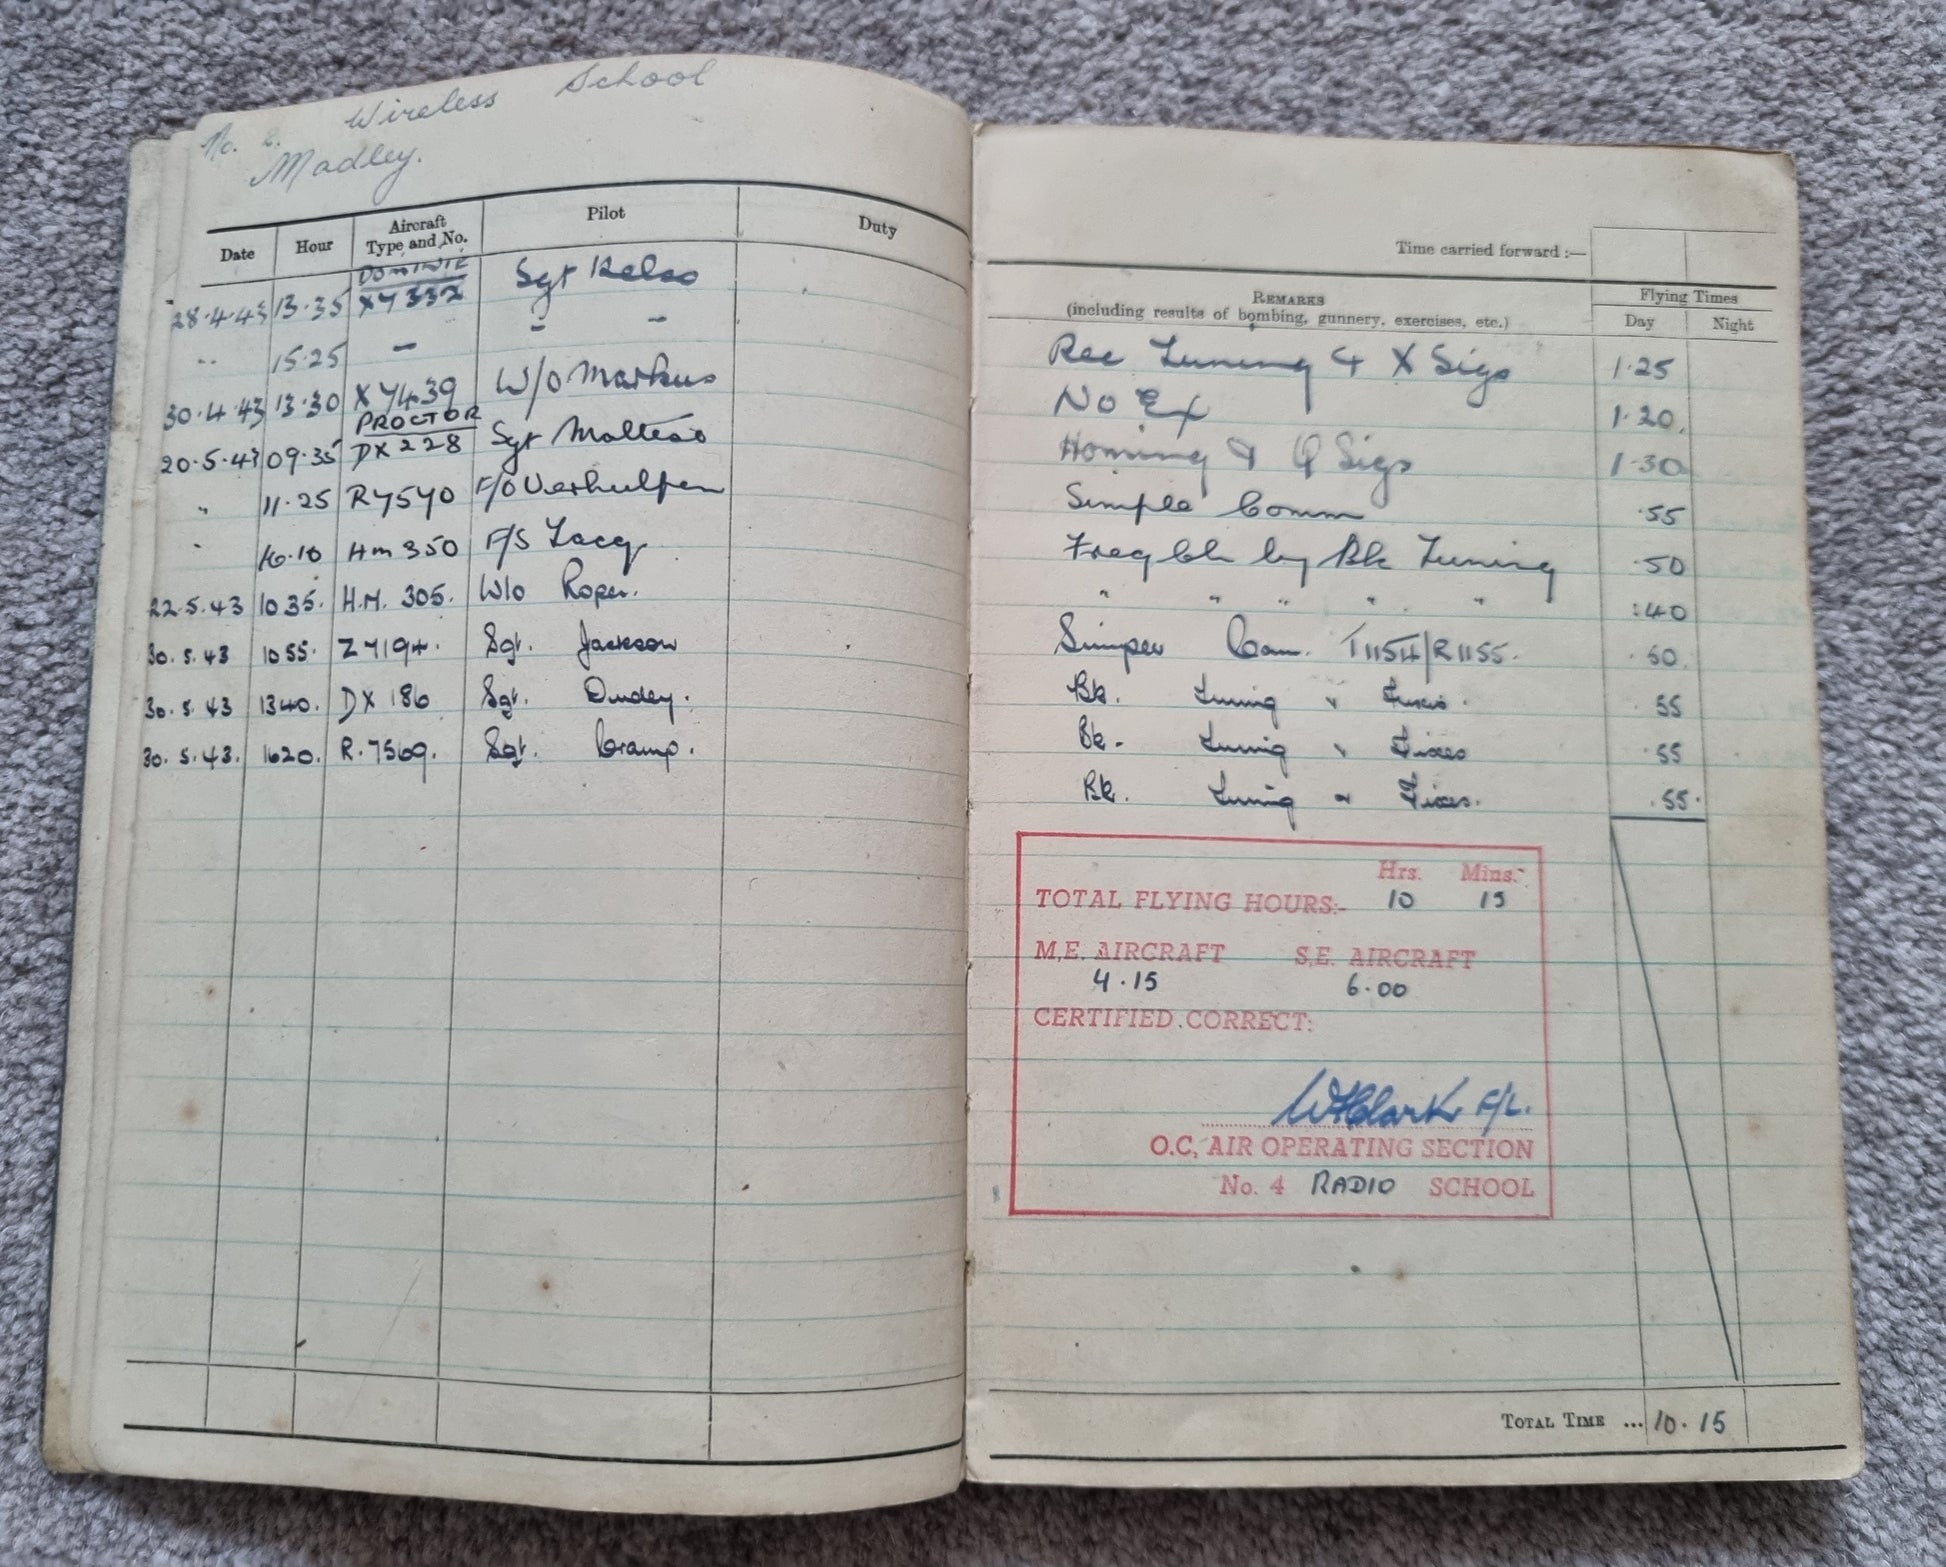 No. Wireless School
Madley.
Date Hour Aircraft Type and No. Pilot Duty
DOMINIE
28.4.43 13.35 X7332 Sgt Kelso
" 15.25 - - -
30.4.43 13.30 X7439 W/O Markus
PROCTOR
20.5.43 09.35 DX228 Sgt
" 11.25 R7570 F/O Verhulpen
" 16.10 Hm 350 F/S
22.5.43 1035. H.M. 305. W/o Roper.
30.5.43 1055. Sgt. Jackson
30.5.43 1340. DX 186 Sgt.
30.5.43. 1620. R.7569. Sgt. Cramp.
Time carried forward :—
REMARKS
(including results of bombing, gunnery, exercises, etc.)
Flying Times
Day Night
Rec Tuning & X Sigs 1.25
No Ex 1.20.
Homing & Q Sigs 1.30
Simple Comm .55
by Bk Tuning .50
" " " " " :40
Com. T1154/R1155. .50.
Bk. Tuning .55
Bk. Tuning Fixes .55
Bk. Tuning Fixes. .55.
Hrs. Mins.
TOTAL FLYING HOURS:- 10 15
M.E. AIRCRAFT S.E. AIRCRAFT
4.15 6.00
CERTIFIED CORRECT:
WHClark F/L.
O.C, AIR OPERATING SECTION
No. 4 RADIO SCHOOL
TOTAL TIME ... 10.15